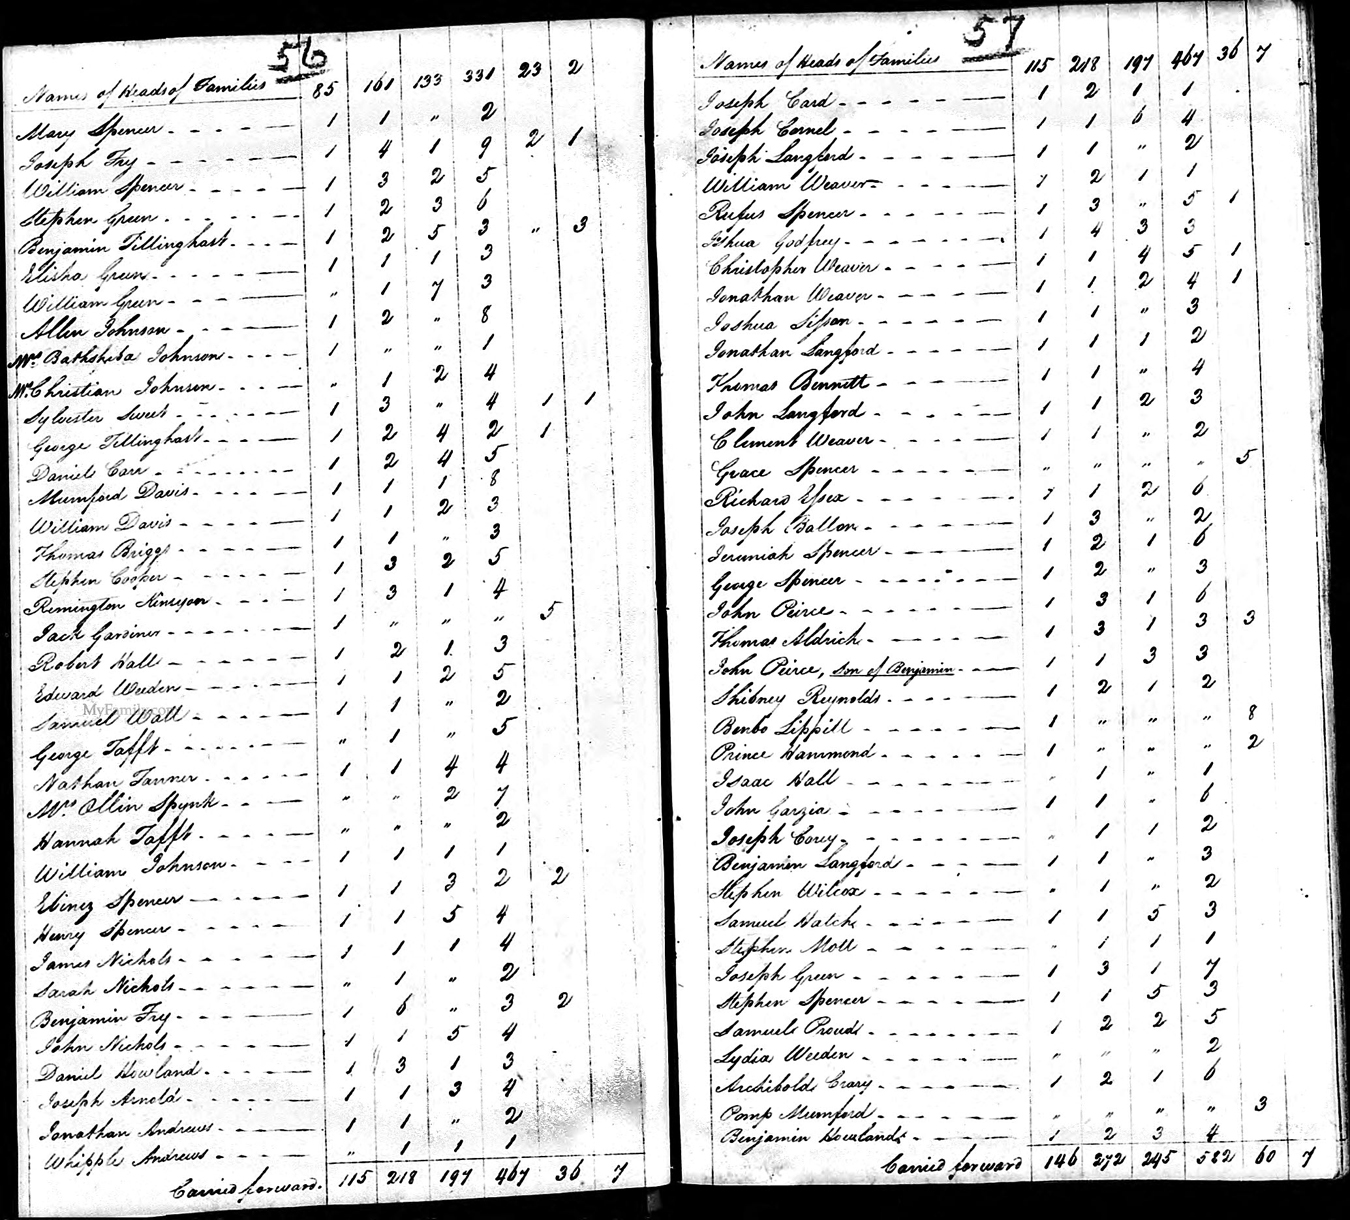 56
Names of Heads of Families 85 161 133 331 23 2
Mary Spencer 1 1 " 2
Joseph Fry 1 4 1 9 2 1
William Spencer 1 3 2 5
Stephen Green 1 2 3 6
Benjamin Tillinghast 1 2 5 3 " 3
Elisha Green 1 1 1 3
William Green " 1 7 3
Allen Johnson 1 2 " 8
Mrs Bathsheba Johnson 1 " " 1
Mr Christian Johnson " 1 2 4
Sylvester Sweet 1 3 " 4 1 1
George Tillinghast 1 2 4 2 1
Daniel Carr 1 2 4 5
Mumford Davis 1 1 1 8
William Davis 1 1 2 3
Thomas Briggs 1 1 " 3
Stephen Cooper 1 3 2 5
Remington Kinsyon 1 3 1 4
Jack Gardiner 1 " " " 5
Robert Hall 1 2 1 3
Edward Weeden 1 1 2 5
Samuel Wall 1 1 " 2
MyFamily.com
George Tafft " 1 " 5
Nathan Tanner 1 1 4 4
Mrs Ollin Spynk " " 2 7
Hannah Tafft " " " 2
William Johnson 1 1 1 1
Ebinez Spencer 1 1 3 2 2
Henry Spencer 1 1 5 4
James Nichols 1 1 1 4
Sarah Nichols " 1 " 2
Benjamin Fry 1 6 " 3 2
John Nichols 1 1 5 4
Daniel Howland 1 3 1 3
Joseph Arnold 1 1 3 4
Jonathan Andrews 1 1 " 2
Whipple Andrews " 1 1 1
Carried forward 115 218 197 467 36 7
57
Names of Heads of Families 115 218 197 467 36 7
Joseph Card 1 2 1 1
Joseph Cornel 1 1 6 4
Joseph Langford 1 1 " 2
William Weaver 1 2 1 1
Rufus Spencer 1 3 " 5 1
Jshua Godfrey 1 4 3 3
Christopher Weaver 1 1 4 5 1
Jonathan Weaver 1 1 2 4 1
Joshua Sisson 1 1 " 3
Jonathan Langford 1 1 1 2
Thomas Bennett 1 1 " 4
John Langford 1 1 2 3
Clement Weaver 1 1 " 2
Grace Spencer " " " " 5
Richard Essex 1 1 2 6
Joseph Ballon 1 3 " 2
Jeremiah Spencer 1 2 1 6
George Spencer 1 2 " 3
John Peirce 1 3 1 6
Thomas Aldrich 1 3 1 3 3
John Peirce, son of Benjamin 1 1 3 3
Shibney Reynolds 1 2 1 2
Benbo Lippitt 1 " " " 8
Prince Hammond 1 " " " 2
Isaac Hall " 1 " 1
John Garzia 1 1 " 6
Joseph Corey " 1 1 2
Benjamin Langford 1 1 " 3
Stephen Wilcox " 1 " 2
Samuel Hatch 1 1 5 3
Stephen Mott " 1 1 1
Joseph Green 1 3 1 7
Stephen Spencer 1 1 5 3
Samuel Proud 1 2 2 5
Lydia Weeden " " " 2
Archibold Crary 1 2 1 6
Pomp Mumford " " " " 3
Benjamin Howland 1 2 3 4
Carried forward 146 272 245 582 60 7